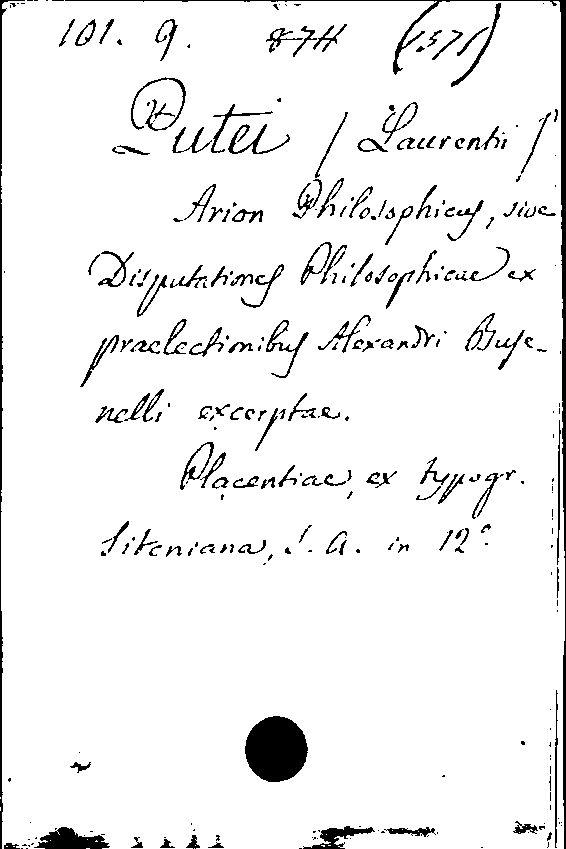 101. 9. 87H (1.571)
Putei / Laurentii /
Arion Philosophicus, sive
Disputationes Philosophicae ex
praelectionibus Alexandri Buse-
nelli excerptae.
Placentiae, ex typogr.
Siteniana, S. A. in 12°